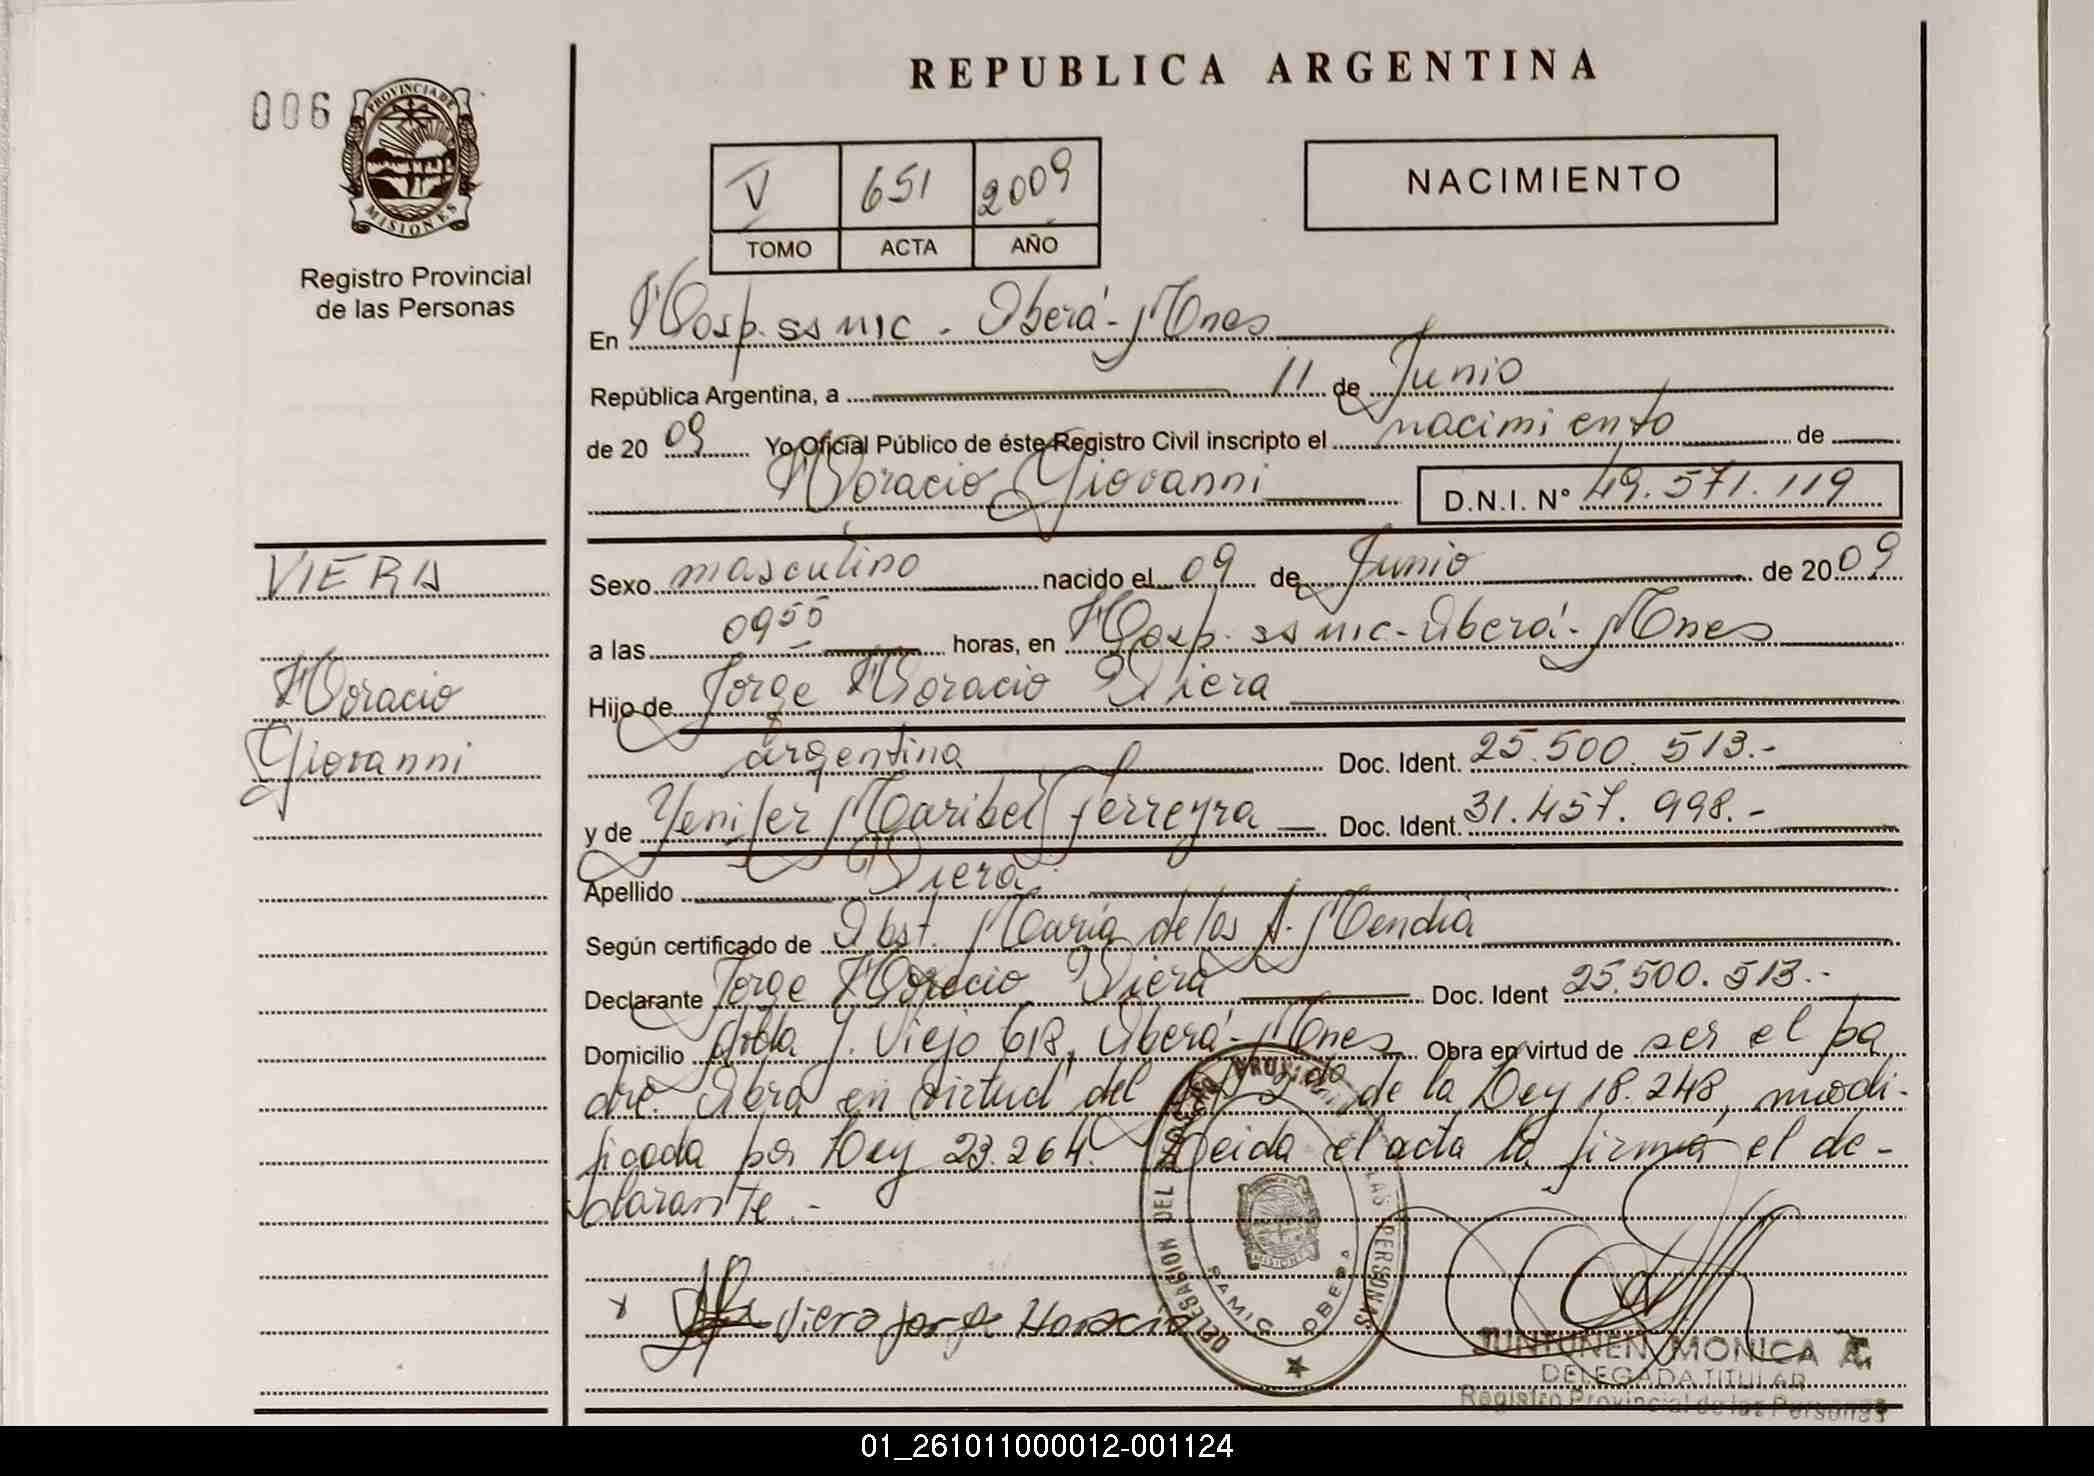 006
PROVINCIA DE
MISIONES
Registro Provincial
de las Personas
REPUBLICA ARGENTINA
V 651 2009
TOMO ACTA AÑO
NACIMIENTO
En Hosp. ss MIC - Oberá - Mnes
República Argentina, a 11 de Junio
de 2009 Yo Oficial Público de éste Registro Civil inscripto el nacimiento de
Horacio Giovanni D.N.I. N° 49.571.119
VIERA
Horacio
Giovanni
Sexo masculino nacido el 09 de Junio de 2009
a las horas, en Hosp. ss MIC - Oberá - Mnes
Hijo de Jorge Horacio Viera
argentina Doc. Ident. 25.500.513.-
y de Yenifer Maribel Ferreyra Doc. Ident. 31.457.998.-
Apellido Viera
Según certificado de Obst. María de los A. Mendia
Declarante Jorge Horacio Viera Doc. Ident 25.500.513.-
Domicilio Avda Y. Viejo 618, Oberá - Mnes Obra en virtud de ser el pa
dre. Obra en virtud del 2do de la Ley 18.248, modi-
ficada por Ley 23.264. Leida el acta la firma el de-
clarante.-
x Viera Jorge Horacio
DELEGACION DEL REGISTRO PROVINCIAL LAS PERSONAS
SAMIC OBERA
MISIONES
JUNTUNEN MONICA
DELEGADA TITULAR
Registro Provincial de las Personas
01_261011000012-001124